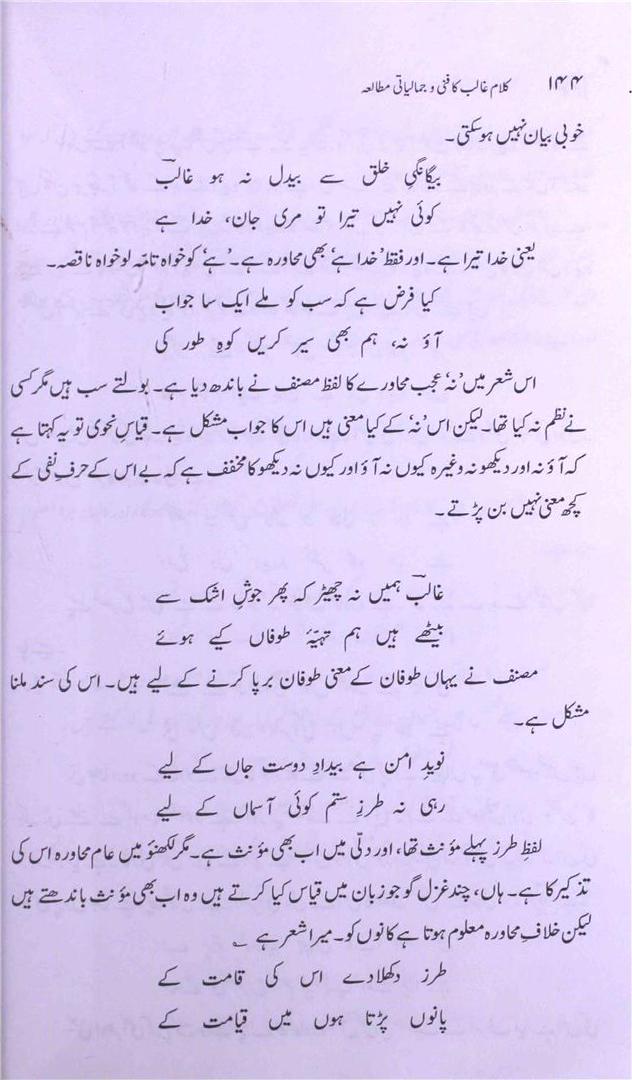 ۱۴۴ کلام غالب کا فنی و جمالیاتی مطالعہ
خوبی بیان نہیں ہوسکتی۔
بیگانگیِ خلق سے بیدل نہ ہو غالبؔ
کوئی نہیں تیرا تو مری جان، خدا ہے
یعنی خدا تیرا ہے۔ اور فقط ’خدا ہے‘ بھی محاورہ ہے۔ ’ہے‘ کو خواہ تامّہ لو خواہ ناقصہ۔
کیا فرض ہے کہ سب کو ملے ایک سا جواب
آؤ نہ، ہم بھی سیر کریں کوہِ طور کی
اس شعر میں ’نہ‘ عجب محاورے کا لفظ مصنف نے باندھ دیا ہے۔ بولتے سب ہیں مگر کسی
نے نظم نہ کیا تھا۔ لیکن اس ’نہ‘ کے کیا معنی ہیں اس کا جواب مشکل ہے۔ قیاسِ نحوی تو یہ کہتا ہے
کہ آؤ نہ اور دیکھو نہ وغیرہ کیوں نہ آؤ اور کیوں نہ دیکھو کا مخفف ہے کہ بے اس کے حرفِ نفی کے
کچھ معنی نہیں بن پڑتے۔
غالبؔ ہمیں نہ چھیڑ کہ پھر جوشِ اشک سے
بیٹھے ہیں ہم تہیّۂ طوفاں کیے ہوئے
مصنف نے یہاں طوفان کے معنی طوفان برپا کرنے کے لیے ہیں۔ اس کی سند ملنا
مشکل ہے۔
نویدِ امن ہے بیدادِ دوست جاں کے لیے
رہی نہ طرزِ ستم کوئی آسماں کے لیے
لفظِ طرز پہلے مؤنث تھا، اور دلّی میں اب بھی مؤنث ہے۔ مگر لکھنؤ میں عام محاورہ اس کی
تذکیر کا ہے۔ ہاں، چند غزل گو جو زبان میں قیاس کیا کرتے ہیں وہ اب بھی مؤنث باندھتے ہیں
لیکن خلافِ محاورہ معلوم ہوتا ہے کانوں کو۔ میرا شعر ہے ؎
طرز دکھلا دے اس کی قامت کے
پانوں پڑتا ہوں میں قیامت کے